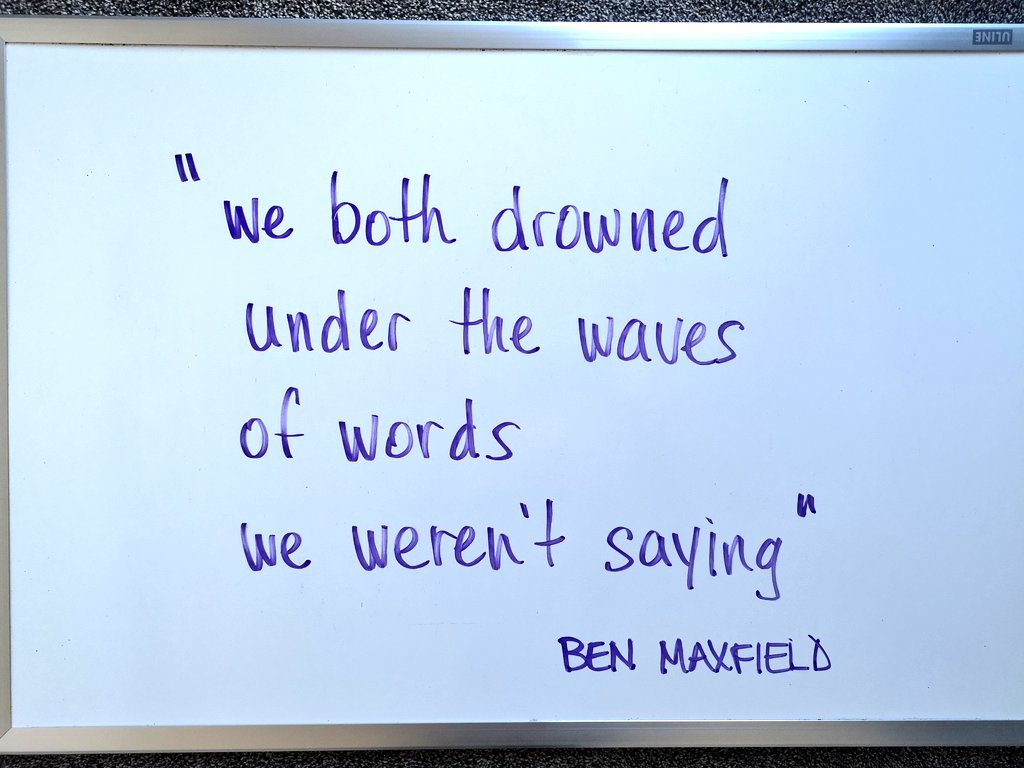 ULINE
"we both drowned
under the waves
of words
we weren't saying"
BEN MAXFIELD